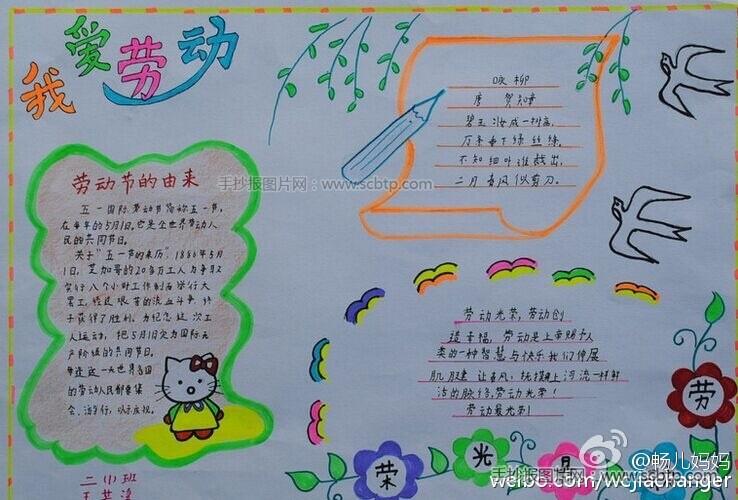 我爱劳动
劳动节的由来
五一国际劳动节简称五一节，
在每年的5月1日。它是全世界劳动人
民的共同节日。
关于"五一节的来历"1886年5月
1日，芝加哥的20多万工人为争取
实行八个小时工作制而举行大
罢工，经过艰苦的流血斗争，终
于获得了胜利。为纪念这次工
人运动，把5月1日定为国际无
产阶级的共同节日。
每逢这一天世界各国
的劳动人民都要集
会、游行，以示庆祝。
二(1)班
咏柳
唐 贺知章
碧玉妆成一树高，
万条垂下绿丝绦。
不知细叶谁裁出，
二月春风似剪刀。
手抄报图片网：www.scbtp.com
劳动光荣，劳动创
造幸福，劳动是上帝赐予人
类的一种智慧与快乐我们伸展
肌腱 让春风，抚摸上河流一样鲜
活的脉络劳动光荣！
劳动最光荣！
劳
荣 光 是
手抄报图片网：www.scbtp.com
@畅儿妈妈
weibo.com/wcjiachanger